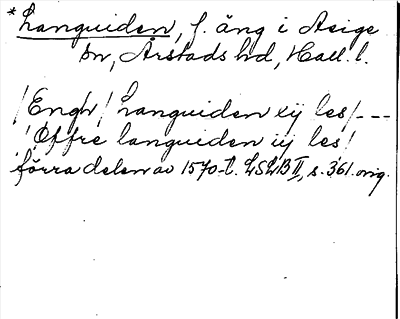 *Languiden, f. äng i Asige
sn, Årstads hd, Hall. l.
/Engh/ Languiden xij les/---
/Øffre languiden iij les/
förra delen av 1570-t. LSLB II, s. 361. orig.